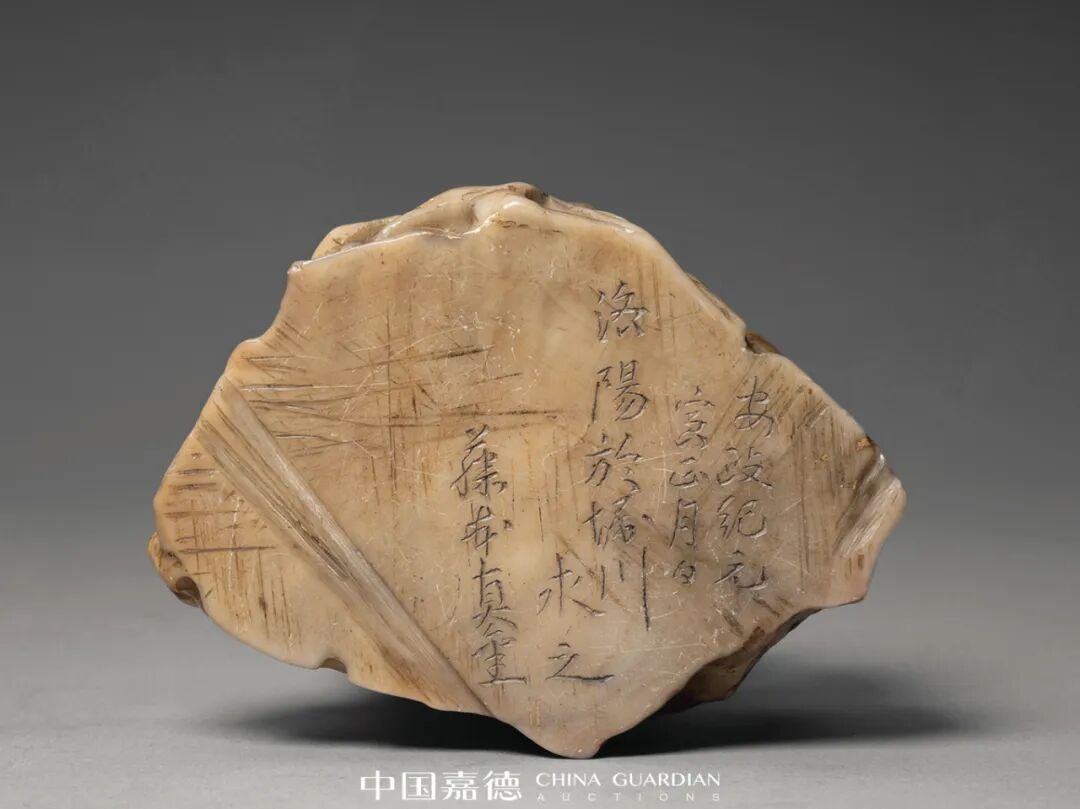 安政紀元
寅正月日
洛陽於堀川
求之
藤本真金
中国嘉德 CHINA GUARDIAN
AUCTIONS